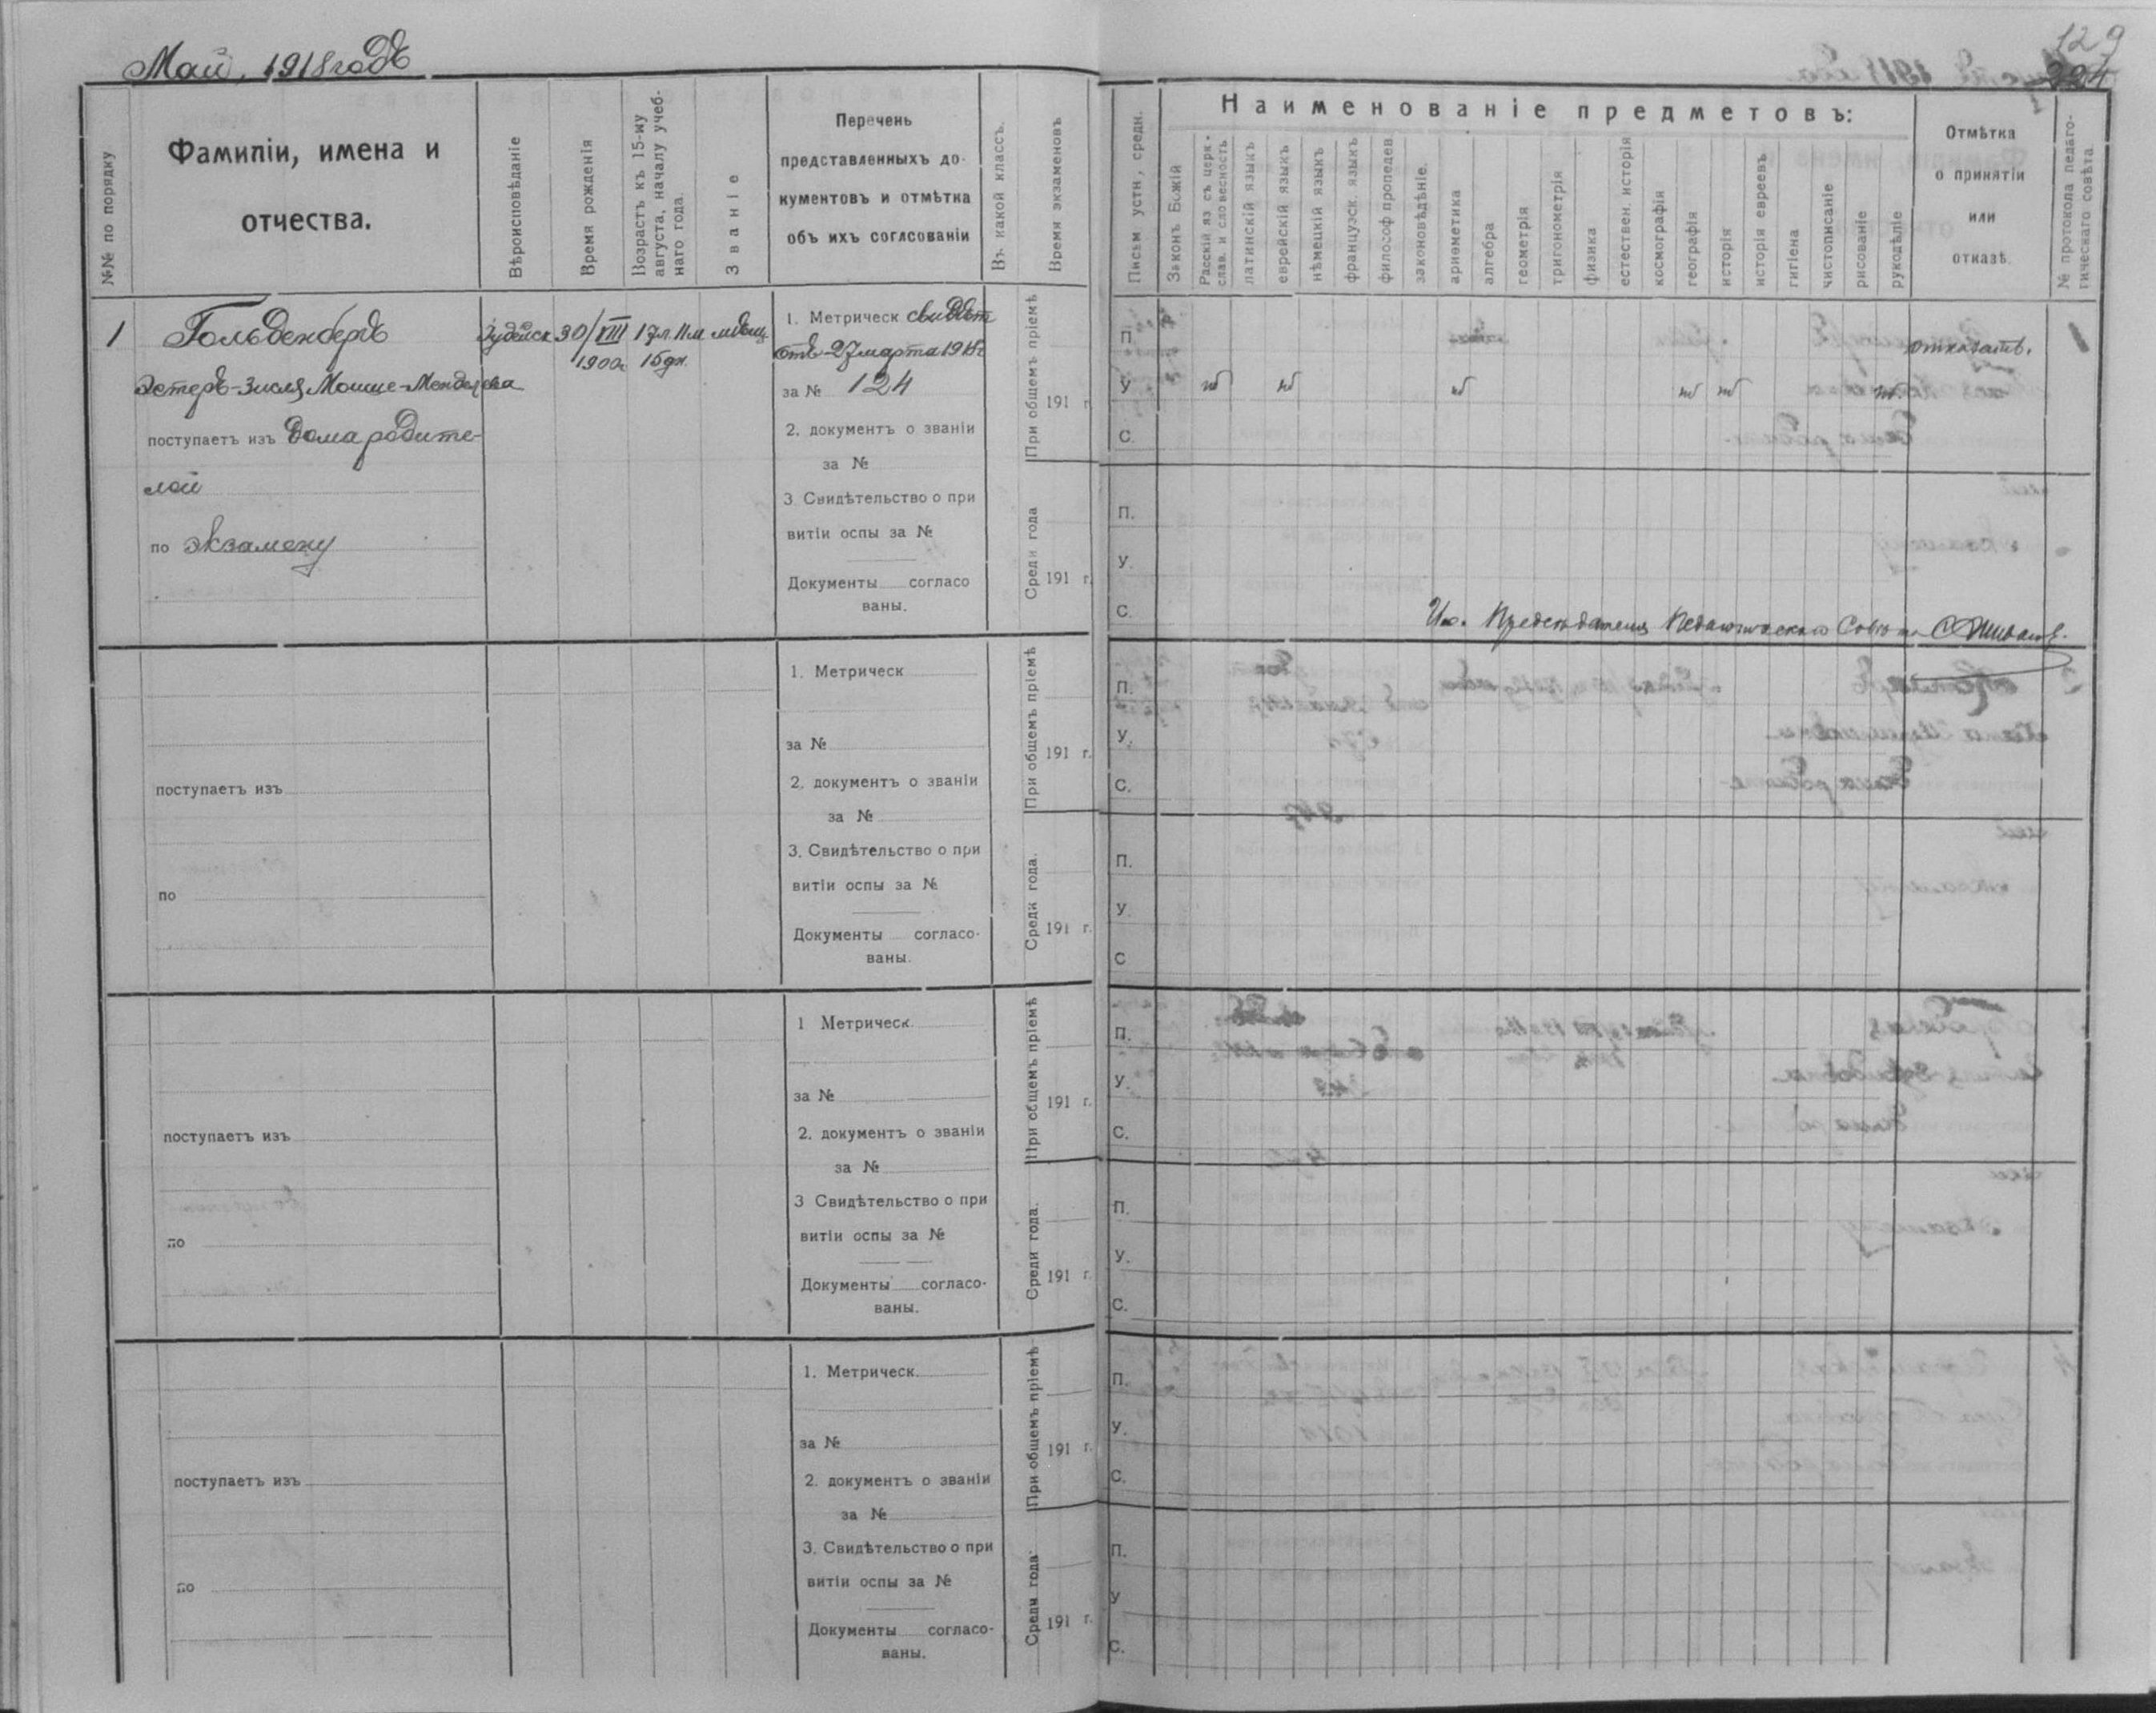 Май, 1918 годъ
129
224
№№ по порядку
Фамиліи, имена и
отчества.
Вѣроисповѣданіе
Время рожденія
Возрастъ къ 15-му
августа, началу учеб-
наго года.
Званіе
Перечень
представленныхъ до-
кументовъ и отмѣтка
объ ихъ соглсованіи
Въ какой классъ.
Время экзаменовъ
Письм устн, средн.
Наименованіе предметовъ:
Законъ Божій
Расскій яз съ церк-
слав. и словесность
латинскій языкъ
еврейскій языкъ
нѣмецкій языкъ
французск. языкъ
философ пропедев
законовѣдѣніе.
ариѳметика
алгебра
геометрія
тригонометрія
физика
естествен. исторія
космографія
географія
исторія
исторія евреевъ
гигіена
чистописаніе
рисованіе
рукодѣліе
Отмѣтка
о принятіи
или
отказѣ.
№ протокола педаго-
гическаго совѣта
1
Гольденбергъ
Эстеръ-Зисля Мошше-Менделева
поступаетъ изъ Дома родите-
лей
по экзамену
Іудейск
30/VIII
1900г.
17л. 11м
15дн.
мѣщ.
1. Метрическ свидѣт
отъ 27 марта 1918г
за № 124
2. документъ о званіи
за №
3 Свидѣтельство о при
витіи оспы за №
Документы согласо
ваны.
При общемъ пріемѣ
191 г.
Среди года
191 г.
П.
У.
С.
отказать.
1
П.
У.
С.
И.о. Предсѣдателя Педагогическаго Совѣта
1. Метрическ
за №
поступаетъ изъ
2. документъ о званіи
за №
3. Свидѣтельство о при
по
витіи оспы за №
Документы согласо-
ваны.
При общемъ пріемѣ
191 г.
Среди года.
191 г.
П.
У.
С.
П.
У.
С
1 Метрическ.
за №
поступаетъ изъ
2. документъ о званіи
за №
3 Свидѣтельство о при
по
витіи оспы за №
Документы согласо-
ваны.
При общемъ пріемѣ
191 г.
Среди года.
191 г.
П.
У.
С.
П.
У.
С.
1. Метрическ.
за №
поступаетъ изъ
2. документъ о званіи
за №
3. Свидѣтельство о при
по
витіи оспы за №
Документы согласо-
ваны.
При общемъ пріемѣ
191 г.
Среди года.
191 г.
П.
У.
С.
П.
У
С.